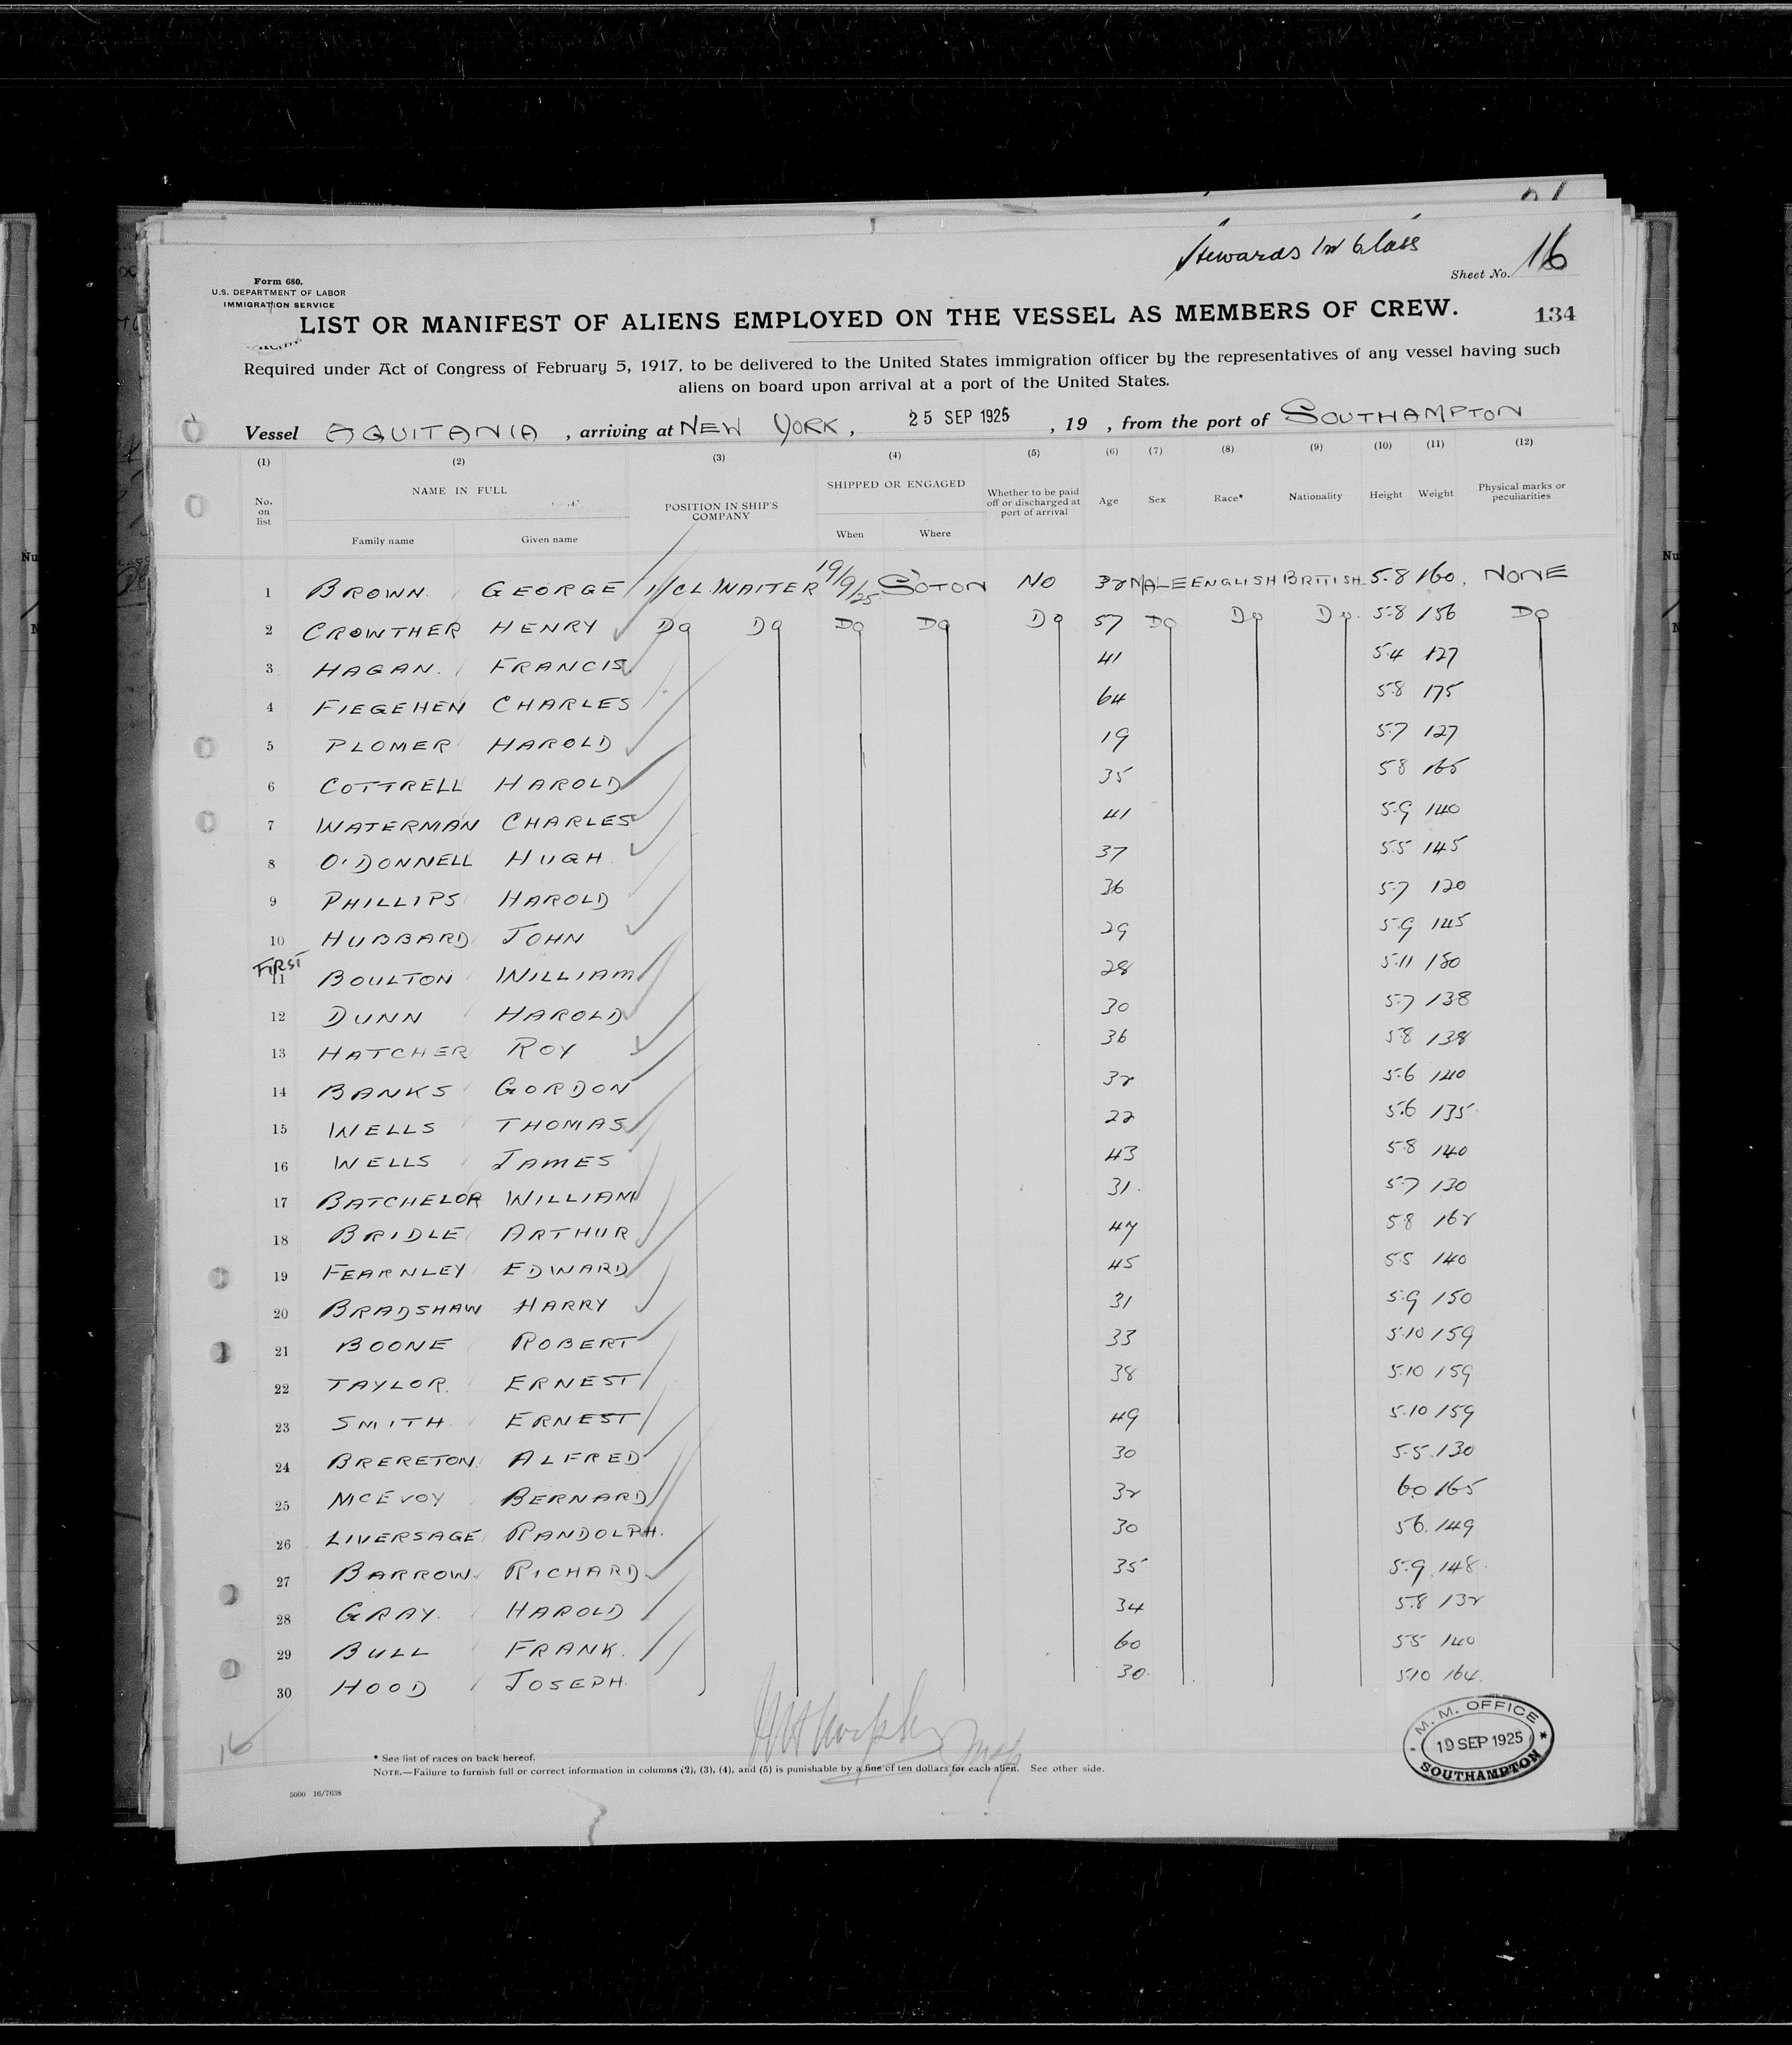 Stewards 1st Class
Sheet No. 16
Form 680.
U.S. DEPARTMENT OF LABOR
IMMIGRATION SERVICE
LIST OR MANIFEST OF ALIENS EMPLOYED ON THE VESSEL AS MEMBERS OF CREW.
134
Required under Act of Congress of February 5, 1917, to be delivered to the United States immigration officer by the representatives of any vessel having such
aliens on board upon arrival at a port of the United States.
Vessel AQUITANIA, arriving at NEW YORK, 25 SEP 1925, 19 , from the port of SOUTHAMPTON
(1) (2) (3) (4) (5) (6) (7) (8) (9) (10) (11) (12)
No. on list NAME IN FULL POSITION IN SHIP'S COMPANY SHIPPED OR ENGAGED Whether to be paid off or discharged at port of arrival Age Sex Race* Nationality Height Weight Physical marks or peculiarities
Family name Given name When Where
1 BROWN GEORGE 1/CL.WAITER 19/9/25 S'OTON NO 32 MALE ENGLISH BRITISH 5-8 160. NONE
2 CROWTHER HENRY Do Do Do Do Do 57 Do Do Do 5-8 156 Do
3 HAGAN. FRANCIS 41 5-4 127
4 FIEGEHEN CHARLES 64 5-8 175
5 PLOMER HAROLD 19 5-7 127
6 COTTRELL HAROLD 35 58 165
7 WATERMAN CHARLES 41 5-9 140
8 O'DONNELL HUGH 37 5-5 145
9 PHILLIPS HAROLD 36 5-7 120
10 HUBBARD JOHN 29 5-9 145
FIRST
11 BOULTON WILLIAM 28 5-11 180
12 DUNN HAROLD 30 5-7 138
13 HATCHER ROY 36 5-8 138
14 BANKS GORDON 32 5-6 140
15 WELLS THOMAS 22 5-6 135
16 WELLS JAMES 43 5-8 140
17 BATCHELOR WILLIAM 31. 5-7 130
18 BRIDLE ARTHUR 47 5-8 162
19 FEARNLEY EDWARD 45 5-5 140
20 BRADSHAW HARRY 31 5-9 150
21 BOONE ROBERT 33 5-10 159
22 TAYLOR. ERNEST 38 5-10 159
23 SMITH ERNEST 49 5-10 159
24 BRERETON ALFRED 30 5-5 130
25 MCEVOY BERNARD 32 6-0 165
26 LIVERSAGE RANDOLPH. 30 56. 149
27 BARROW RICHARD 35 5-9 148
28 GRAY. HAROLD 34 5-8 132
29 BULL FRANK. 60 5-5 140
30 HOOD JOSEPH. 30. 5-10 164.
16
M. M. OFFICE
19 SEP 1925
SOUTHAMPTON
* See list of races on back hereof.
NOTE.—Failure to furnish full or correct information in columns (2), (3), (4), and (5) is punishable by a fine of ten dollars for each alien. See other side.
5000 16/7638